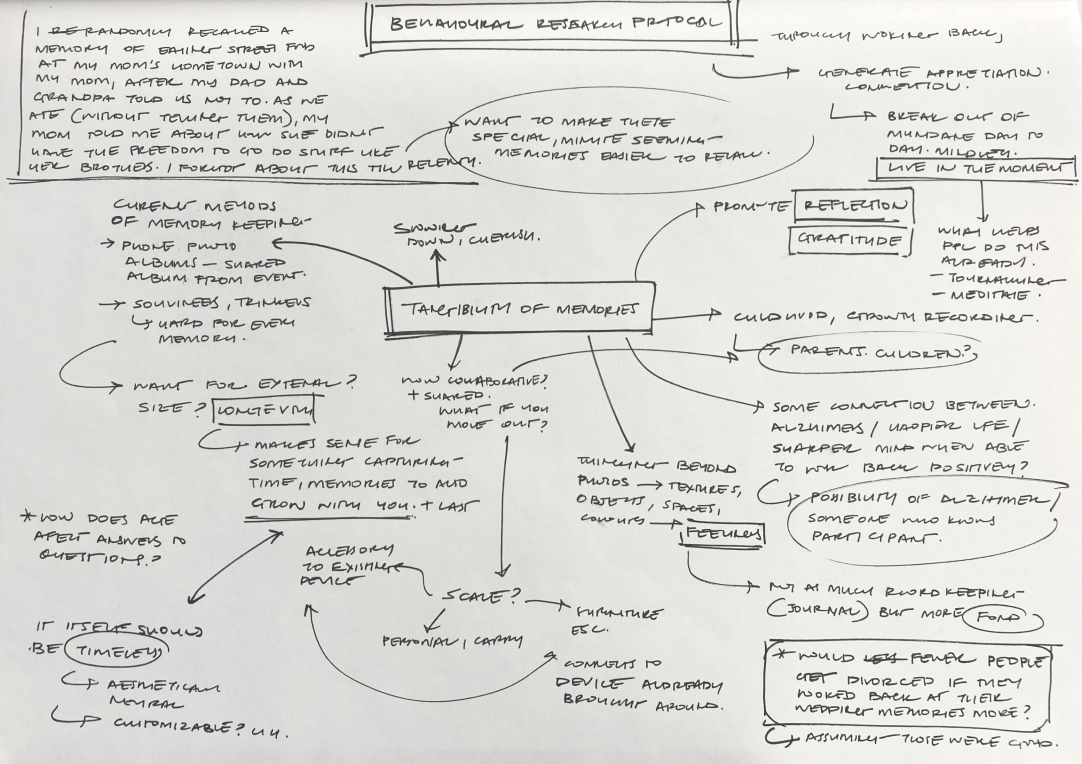 BEHAVIOURAL RESEARCH PROTOCOL
I RANDOMLY RECALLED A
MEMORY OF EATING STREET FOOD
AT MY MOM'S HOMETOWN WITH
MY MOM, AFTER MY DAD AND
GRANDPA TOLD US NOT TO. AS WE
ATE (WITHOUT TELLING THEM), MY
MOM TOLD ME ABOUT HOW SHE DIDN'T
HAVE THE FREEDOM TO GO DO STUFF LIKE
HER BROTHERS. I FORGOT ABOUT THIS TILL RECENTLY.
WANT TO MAKE THESE
SPECIAL, MINUTE SEEMING
MEMORIES EASIER TO RECALL.
THROUGH LOOKING BACK,
GENERATE APPRECIATION.
CONNECTION.
BREAK OUT OF
MUNDANE DAY TO
DAY.
LIVE IN THE MOMENT
WHAT HELPS
PPL DO THIS
ALREADY.
- JOURNALLING
- MEDITATE.
PROMOTE REFLECTION
GRATITUDE
CURRENT METHODS
OF MEMORY KEEPING
→ PHONE PHOTO
ALBUMS — SHARED
ALBUM FROM EVENT.
→ SOUVINEERS, TRINKETS
HARD FOR EVERY
MEMORY.
SLOWING
DOWN, CHERISH.
TANGIBILITY OF MEMORIES
CHILDHOOD, GROWTH RECORDING.
PARENTS. CHILDREN?
WANT FOR EXTERNAL?
SIZE? LONGEVITY
MAKES SENSE FOR
SOMETHING CAPTURING
TIME, MEMORIES TO ALSO
GROW WITH YOU. + LAST
HOW COLLABORATIVE?
+ SHARED.
WHAT IF YOU
MOVE OUT?
THINKING BEYOND
PHOTOS → TEXTURES,
OBJECTS, SPACES,
COLOURS → FEELINGS
SOME CONNECTION BETWEEN.
ALZHIMERS / HAPPIER LIFE /
SHARPER MIND WHEN ABLE
TO LOOK BACK POSITIVELY?
POSSIBILITY OF ALZHIMER /
SOMEONE WHO KNOWS
PARTICIPANT.
NOT AS MUCH RECORD KEEPING
(JOURNAL) BUT MORE FOND
* HOW DOES AGE
AFFECT ANSWERS TO
QUESTIONS?
IT ITSELF SHOULD
BE TIMELESS
AESTHETICALLY
NEUTRAL
CUSTOMIZABLE?
ACCESSORY
TO EXISTING
DEVICE
SCALE?
PERSONAL, CARRY
FURNITURE
ESC.
CONNECTS TO
DEVICE ALREADY
BROUGHT AROUND.
* WOULD FEWER PEOPLE
GET DIVORCED IF THEY
LOOKED BACK AT THEIR
WEDDING MEMORIES MORE?
ASSUMING THOSE WERE GOOD.